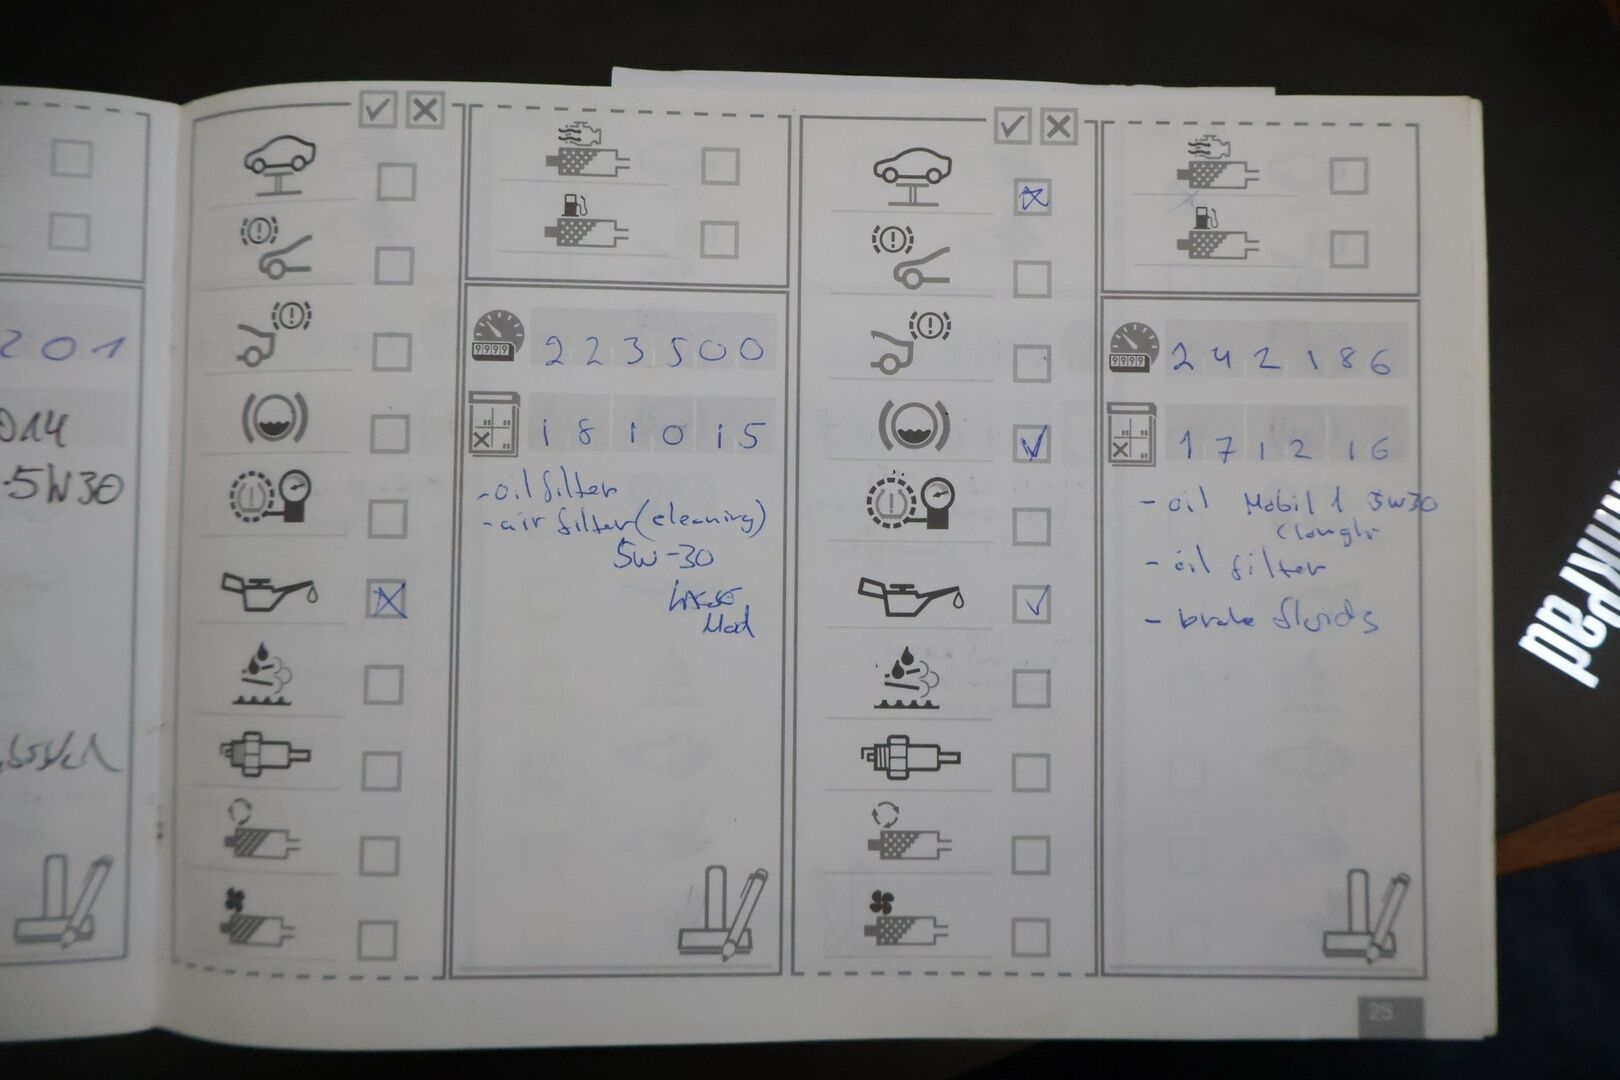 201
014
-5W30
9999
223500
181015
-oil filter
-air filter (cleaning)
5W-30
9999
242186
171216
- oil Mobil 1 5w30
- oil filter
- brake fluids
25